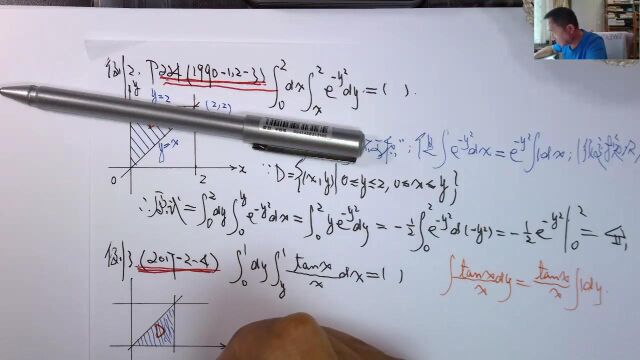 例2. P224(1990-1,2-3) ∫₀²dx∫ₓ²e^{-y²}dy=( ).
y
y=2 (2,2)
": 但∫e^{-y²}dx=e^{-y²}∫1dx;
y=x
0 2 x ∵D={(x,y)|0≤y≤2,0≤x≤y}
∴原式=∫₀²dy∫₀ʸe^{-y²}dx=∫₀²ye^{-y²}dy=-½∫₀²e^{-y²}d(-y²)=-½e^{-y²}|₀²=
例3.(2017-2-4) ∫₀¹dy∫ᵧ¹(tanx/x)dx=( ) ∫(tanx/x)dy=(tanx/x)∫1dy.
D